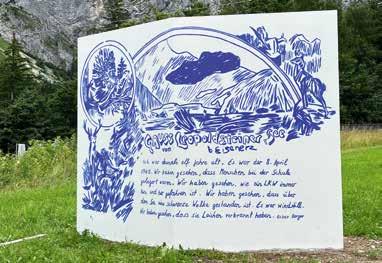 Gruss Leopoldsteiner See
vom b. Eisenerz
Ich war damals elf Jahre alt. Es war der 8. April
1945. Wir haben gesehen, dass Menschen bei der Schule
gelagert waren. Wir haben gesehen, wie ein LKW immer
hin und her gefahren ist. Wir haben gesehen, dass über
dem See eine schwarze Wolke gestanden ist. Es war windstill.
Wir haben gerochen, dass sie Leichen verbrannt haben.